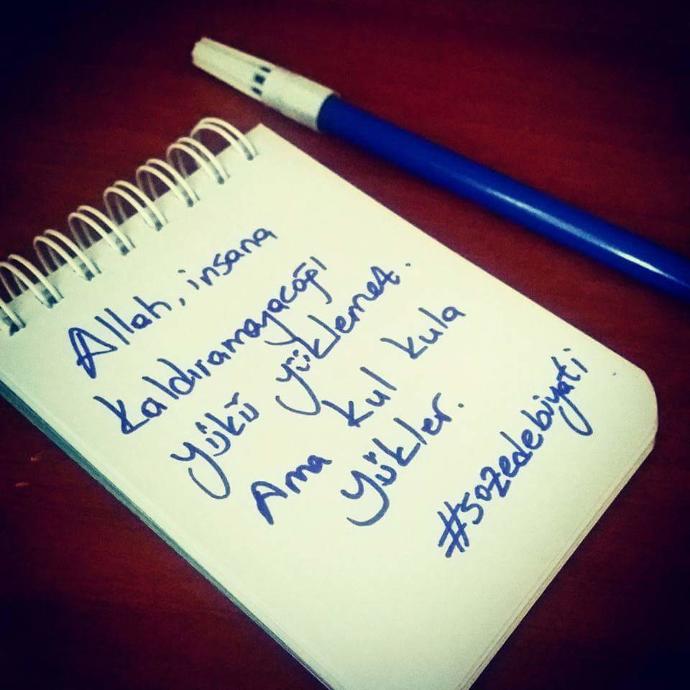 Allah, insana
kaldıramayacağı
yükü yüklemez.
Ama kul kula
yükler.
#sozedebiyati